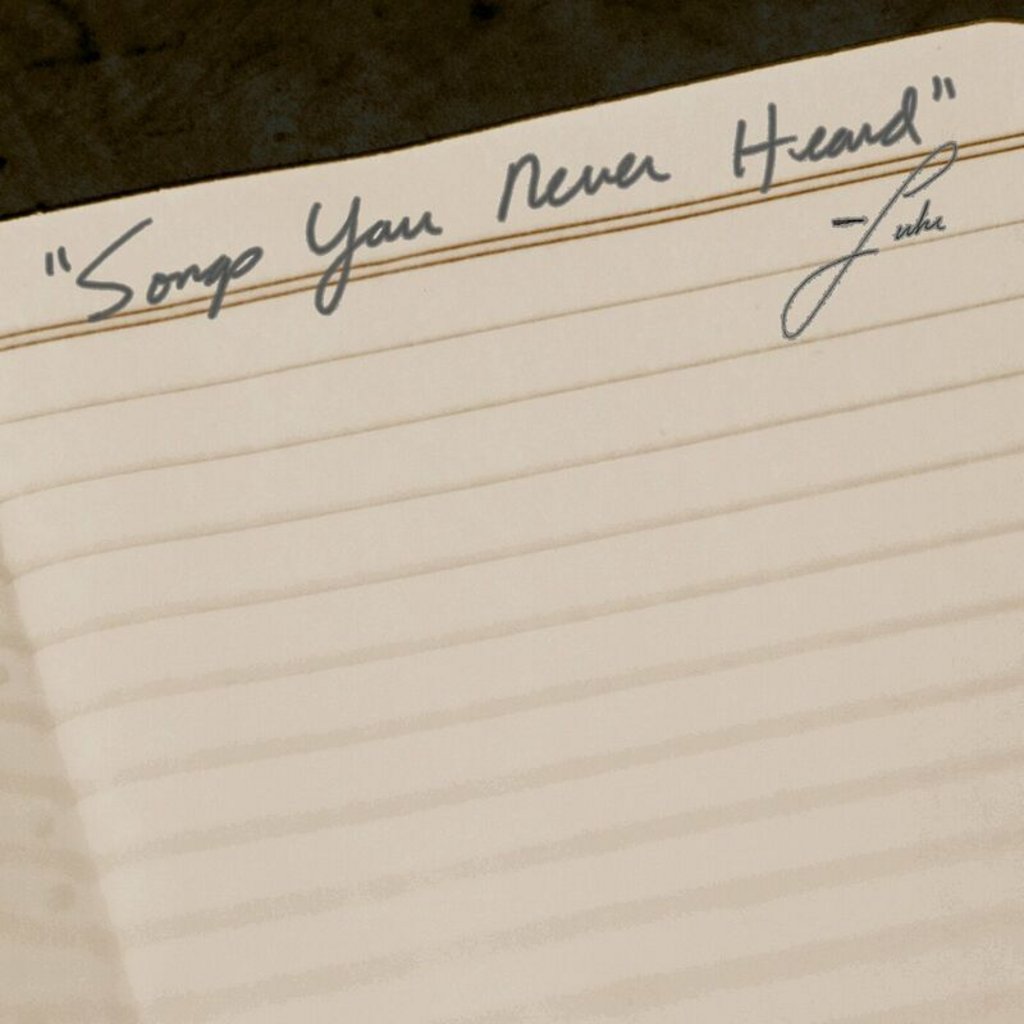 "Songs You Never Heard"
- Luke